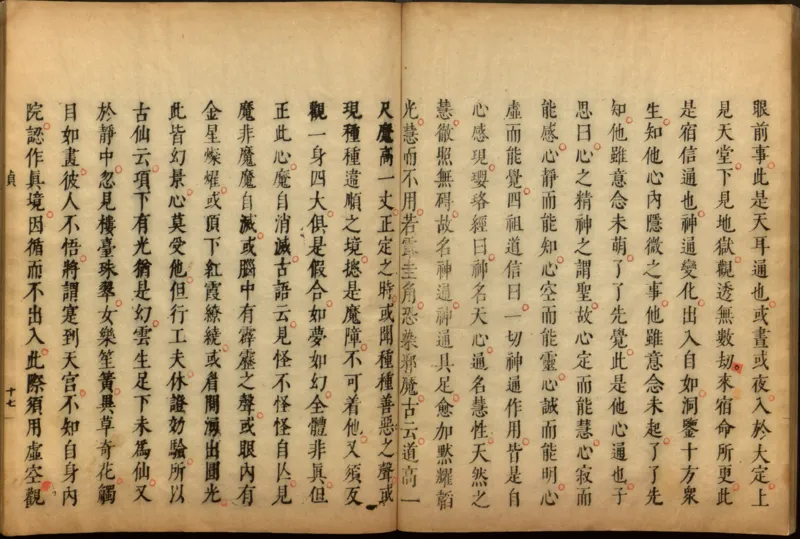 眼前事此是天耳通也或晝或夜入於大定上
見天堂下見地獄觀透無數劫來宿命所更此
是宿信通也神通變化出入自如洞鑒十方衆
生知他心內隱微之事他雖意念未起了了先
知他雖意念未萌了了先覺此是他心通也子
思曰心之精神之謂聖故心定而能慧心寂而
能感心靜而能知心空而能靈心誠而能明心
虛而能覺四祖道信曰一切神通作用皆是自
心感現瓔珞經曰神名天心通名慧性天然之
慧徹照無碍故名神通神通具足愈加黙耀韜
光慧而不用若露圭角恐染邪魔古云道高一
尺魔高一丈正定之時或聞種種善惡之聲或
現種種違順之境摠是魔障不可着他又須反
觀一身四大俱是假合如夢如幻全體非眞但
正此心魔自消滅古語云見怪不怪怪自亾見
魔非魔魔自滅或腦中有霹靂之聲或眼內有
金星燦耀或頂下紅霞繚繞或眉間湧出圓光
此皆幻景心莫受他但行工夫休證効驗所以
古仙云項下有光猶是幻雲生足下未爲仙又
於靜中忽見樓臺珠翠女樂笙簧異草奇花觸
目如畫彼人不悟將謂寔到天宮不知自身內
院認作眞境因循而不出入此際須用虛空觀
貞
十七